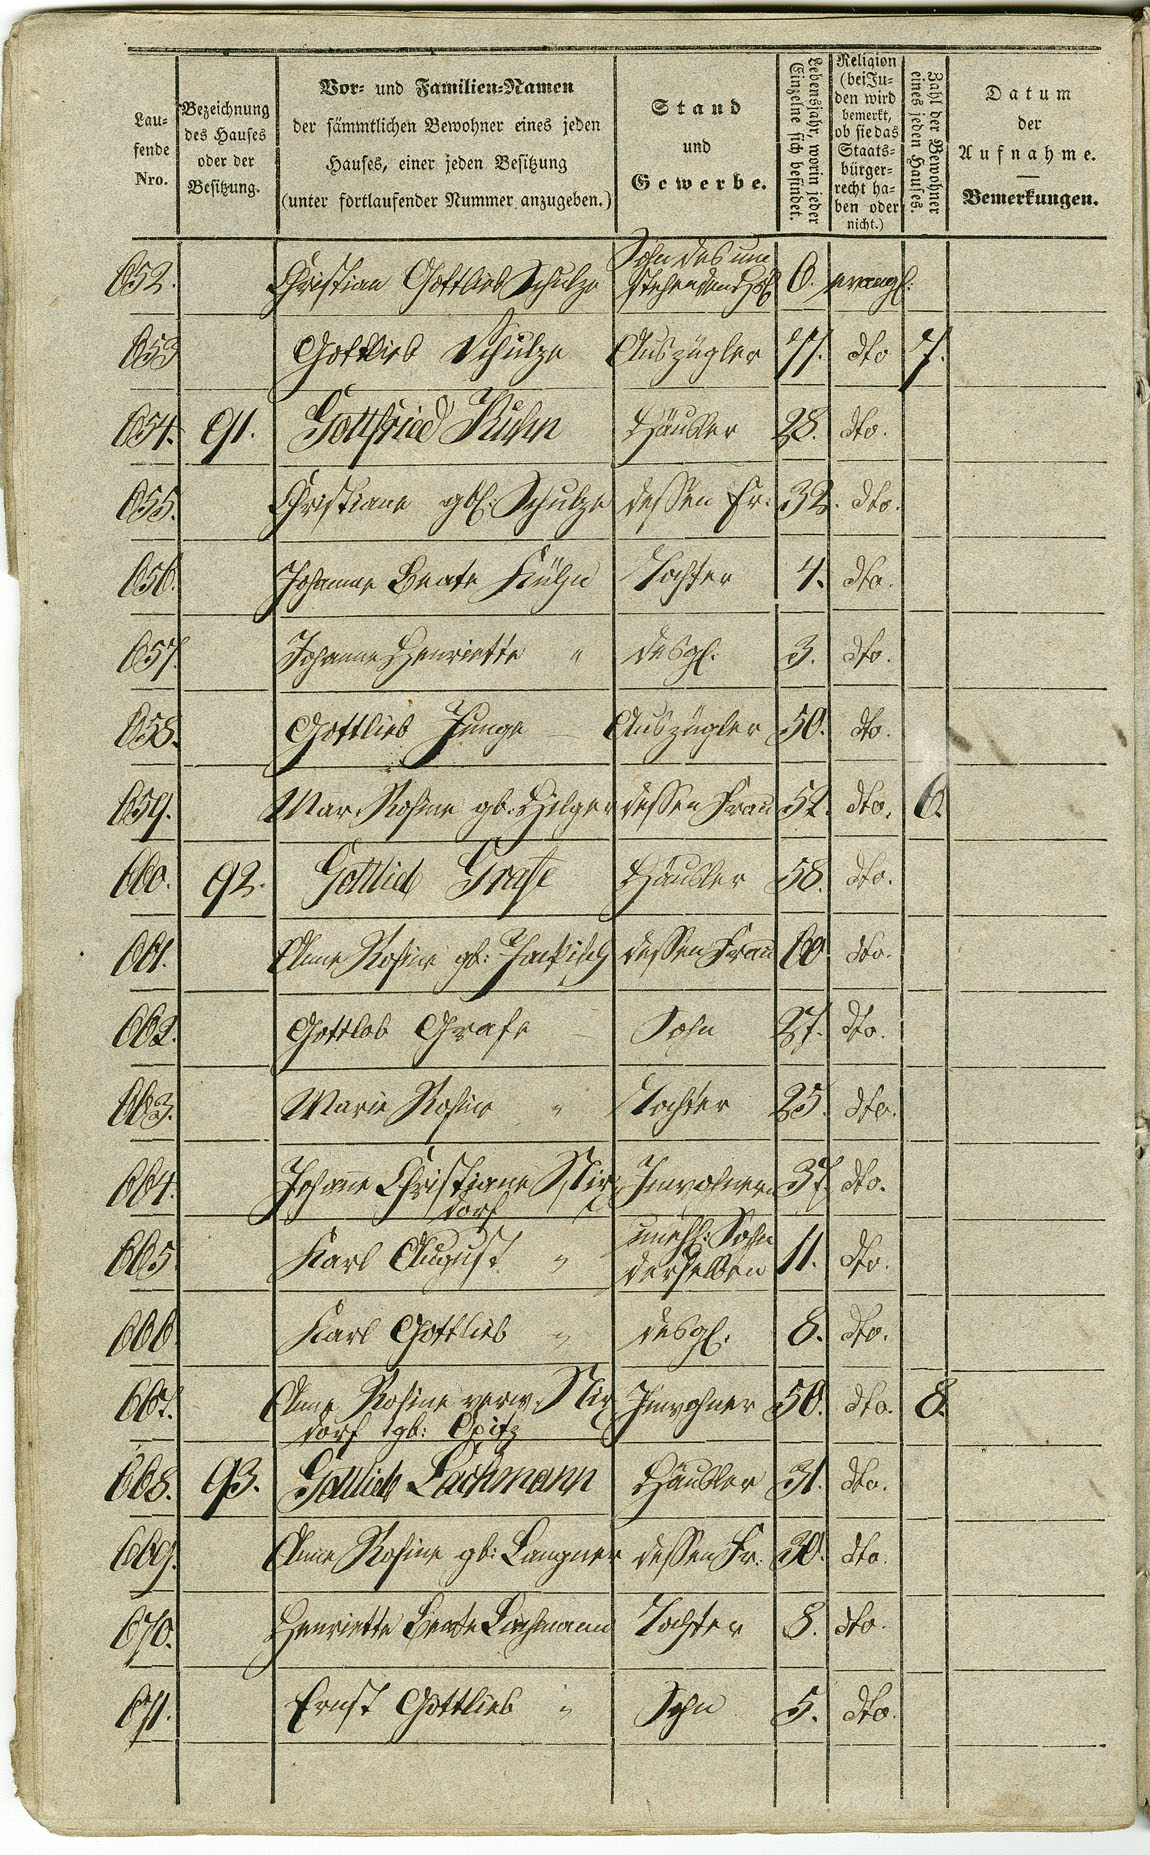 Lau-
fende
Nro.
Bezeichnung
des Hauses
oder der
Besitzung.
Vor- und Familien-Namen
der sämmtlichen Bewohner eines jeden
Hauses, einer jeden Besitzung
(unter fortlaufender Nummer anzugeben.)
Stand
und
Gewerbe.
Lebensjahr, worin jeder
Einzelne sich befindet.
Religion
(bei Ju-
den wird
bemerkt,
ob sie das
Staats-
bürger-
recht ha-
ben oder
nicht.)
Zahl der Bewohner
eines jeden Hauses.
Datum
der
Aufnahme.
Bemerkungen.
652. Christian Gottlieb Schulze Sohn des 6. evangl.
653 Gottlieb Schulze Auszügler 71. dto 7.
654. 91. Gottfried Kuhn Häusler 28. dto.
655. Christiane gb. Schulze dessen Fr. 32. dto.
656. Johanne Beate Kühn Tochter 4. dto.
657. Johanne Henriette " desgl. 3. dto.
658. Gottlieb Junge Auszügler 50. dto.
659. Mar. Rosine gb. Hilger dessen Frau 52. dto. 6.
660. 92. Gottlieb Grafe Häusler 58. dto.
661. Anne Rosine gb: dessen Frau 60. dto.
662. Gottlob Grafe Sohn 27. dto.
663. Marie Rosine " Tochter 25. dto.
664. Johanne Christiane Nix-
dorf Inwohnern 37. dto.
665 Karl August " unehl: Sohn
derselben 11. dto.
666 Karl Gottlieb " desgl. 8. dto.
667. Anne Rosine verw. Nix
dorf gb: Opitz Inwohner 50. dto. 8.
668. 93. Gottlieb Lachmann Häusler 31. dto.
669. Anne Rosine gb: Langner dessen Fr. 30. dto.
670. Henriette Beate Lachmann Tochter 8. dto.
671. Ernst Gottlieb " Sohn 5. dto.